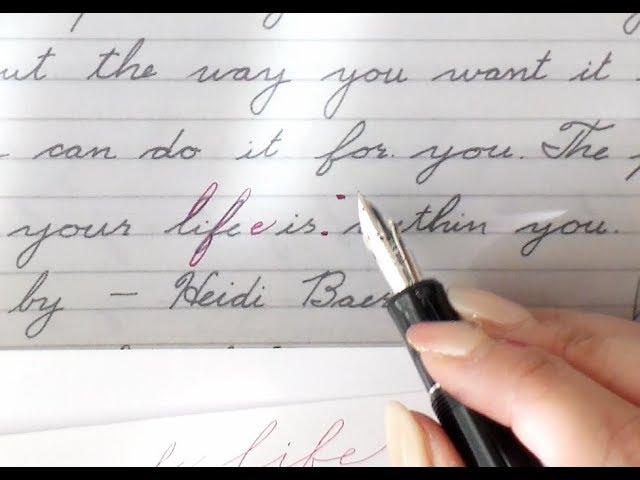 ut the way you want it
can do it for you. The
your life is within you.
by – Heidi Baer
life